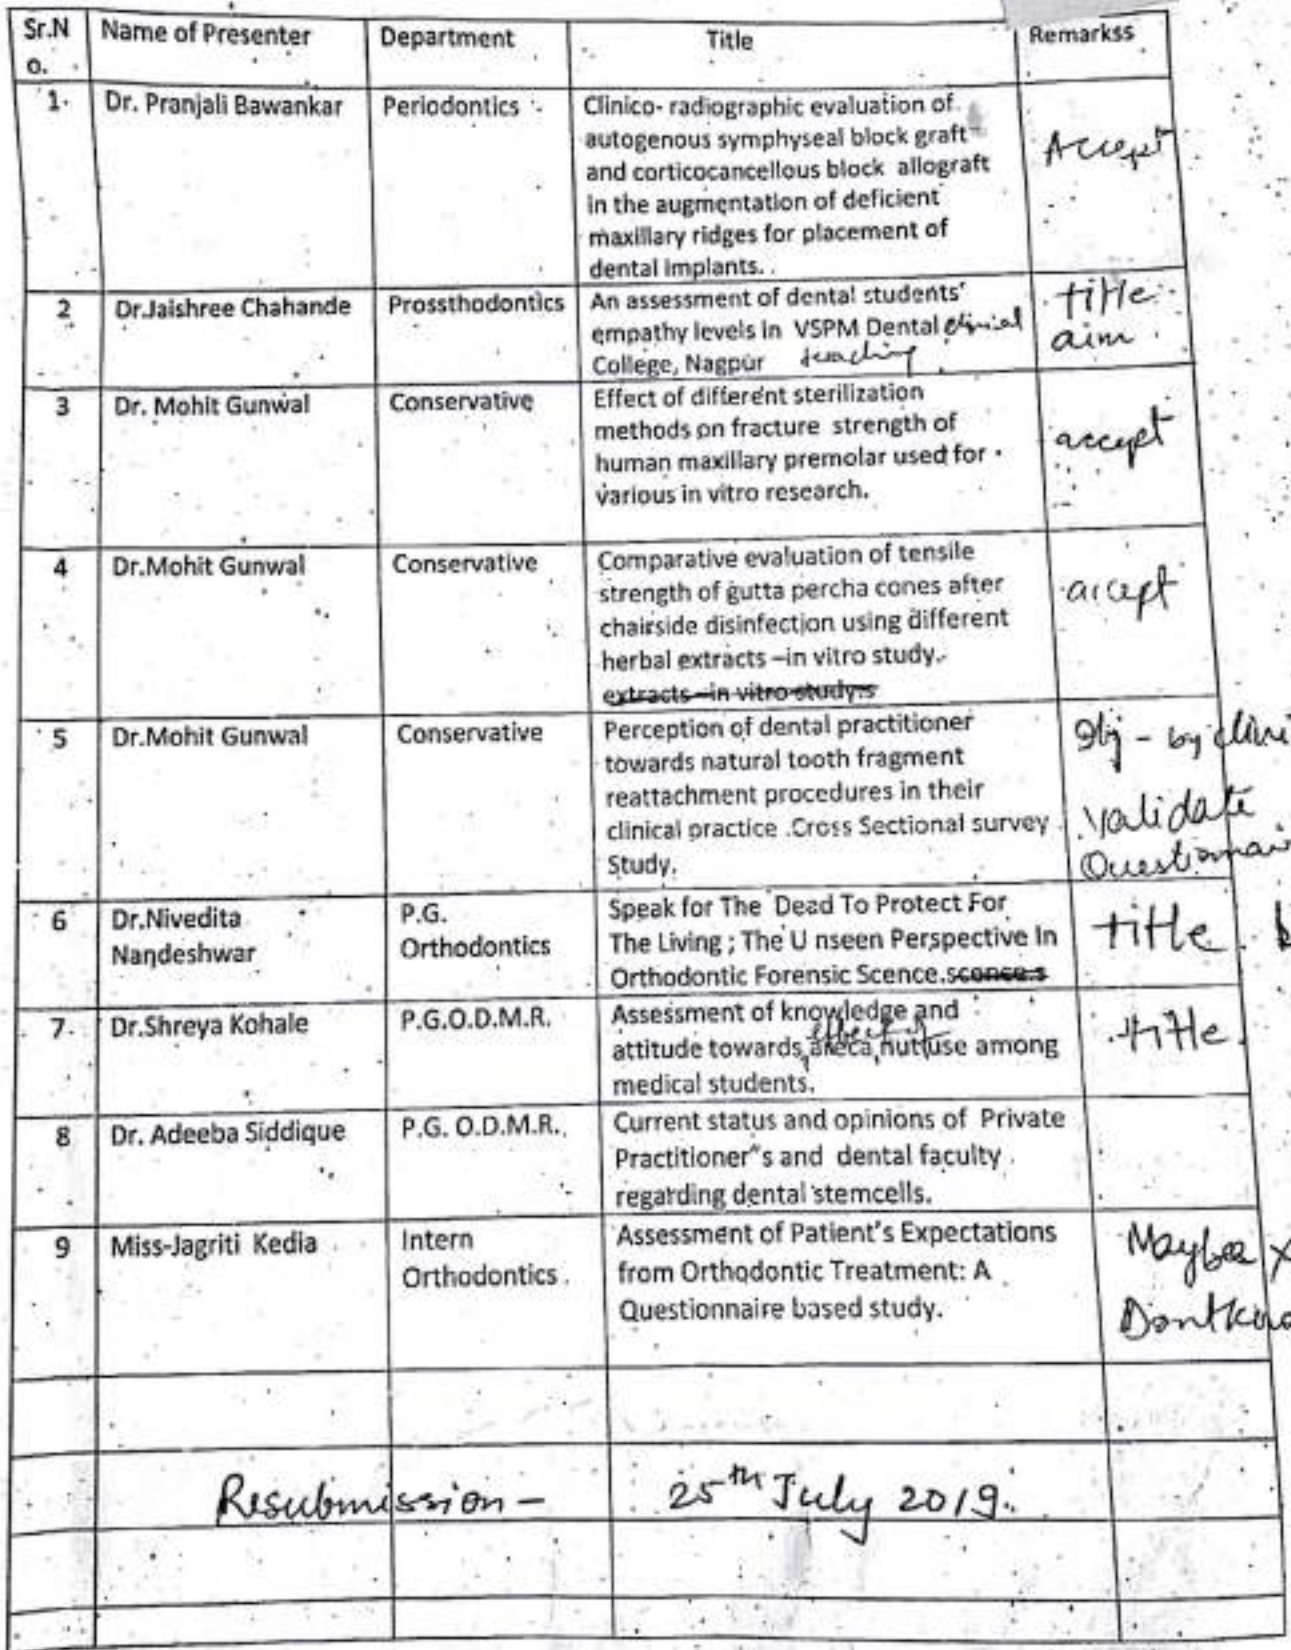 Sr.N Name of Presenter Department Title Remarkss
o.
1. Dr. Pranjali Bawankar Periodontics Clinico- radiographic evaluation of
autogenous symphyseal block graft
and corticocancellous block allograft
in the augmentation of deficient
maxillary ridges for placement of
dental implants.
Accept
2 Dr.Jaishree Chahande Prossthodontics An assessment of dental students'
empathy levels in VSPM Dental clinical
College, Nagpur teaching
title
aim
3 Dr. Mohit Gunwal Conservative Effect of different sterilization
methods on fracture strength of
human maxillary premolar used for
various in vitro research.
accept
4 Dr.Mohit Gunwal Conservative Comparative evaluation of tensile
strength of gutta percha cones after
chairside disinfection using different
herbal extracts –in vitro study.
extracts –in vitro study.s
accept
5 Dr.Mohit Gunwal Conservative Perception of dental practitioner
towards natural tooth fragment
reattachment procedures in their
clinical practice .Cross Sectional survey
Study.
Obj - by clini
validate
Questionnair
6 Dr.Nivedita P.G. Speak for The Dead To Protect For
Nandeshwar Orthodontics The Living ; The U nseen Perspective In
Orthodontic Forensic Scence.
title
7. Dr.Shreya Kohale P.G.O.D.M.R. Assessment of knowledge and
effect of
attitude towards areca nut use among
medical students.
title
8 Dr. Adeeba Siddique P.G. O.D.M.R. Current status and opinions of Private
Practitioner"s and dental faculty
regarding dental stemcells.
9 Miss-Jagriti Kedia Intern Assessment of Patient's Expectations
Orthodontics from Orthodontic Treatment: A
Questionnaire based study.
Maybee x
Dontkno
Resubmission – 25th July 2019.